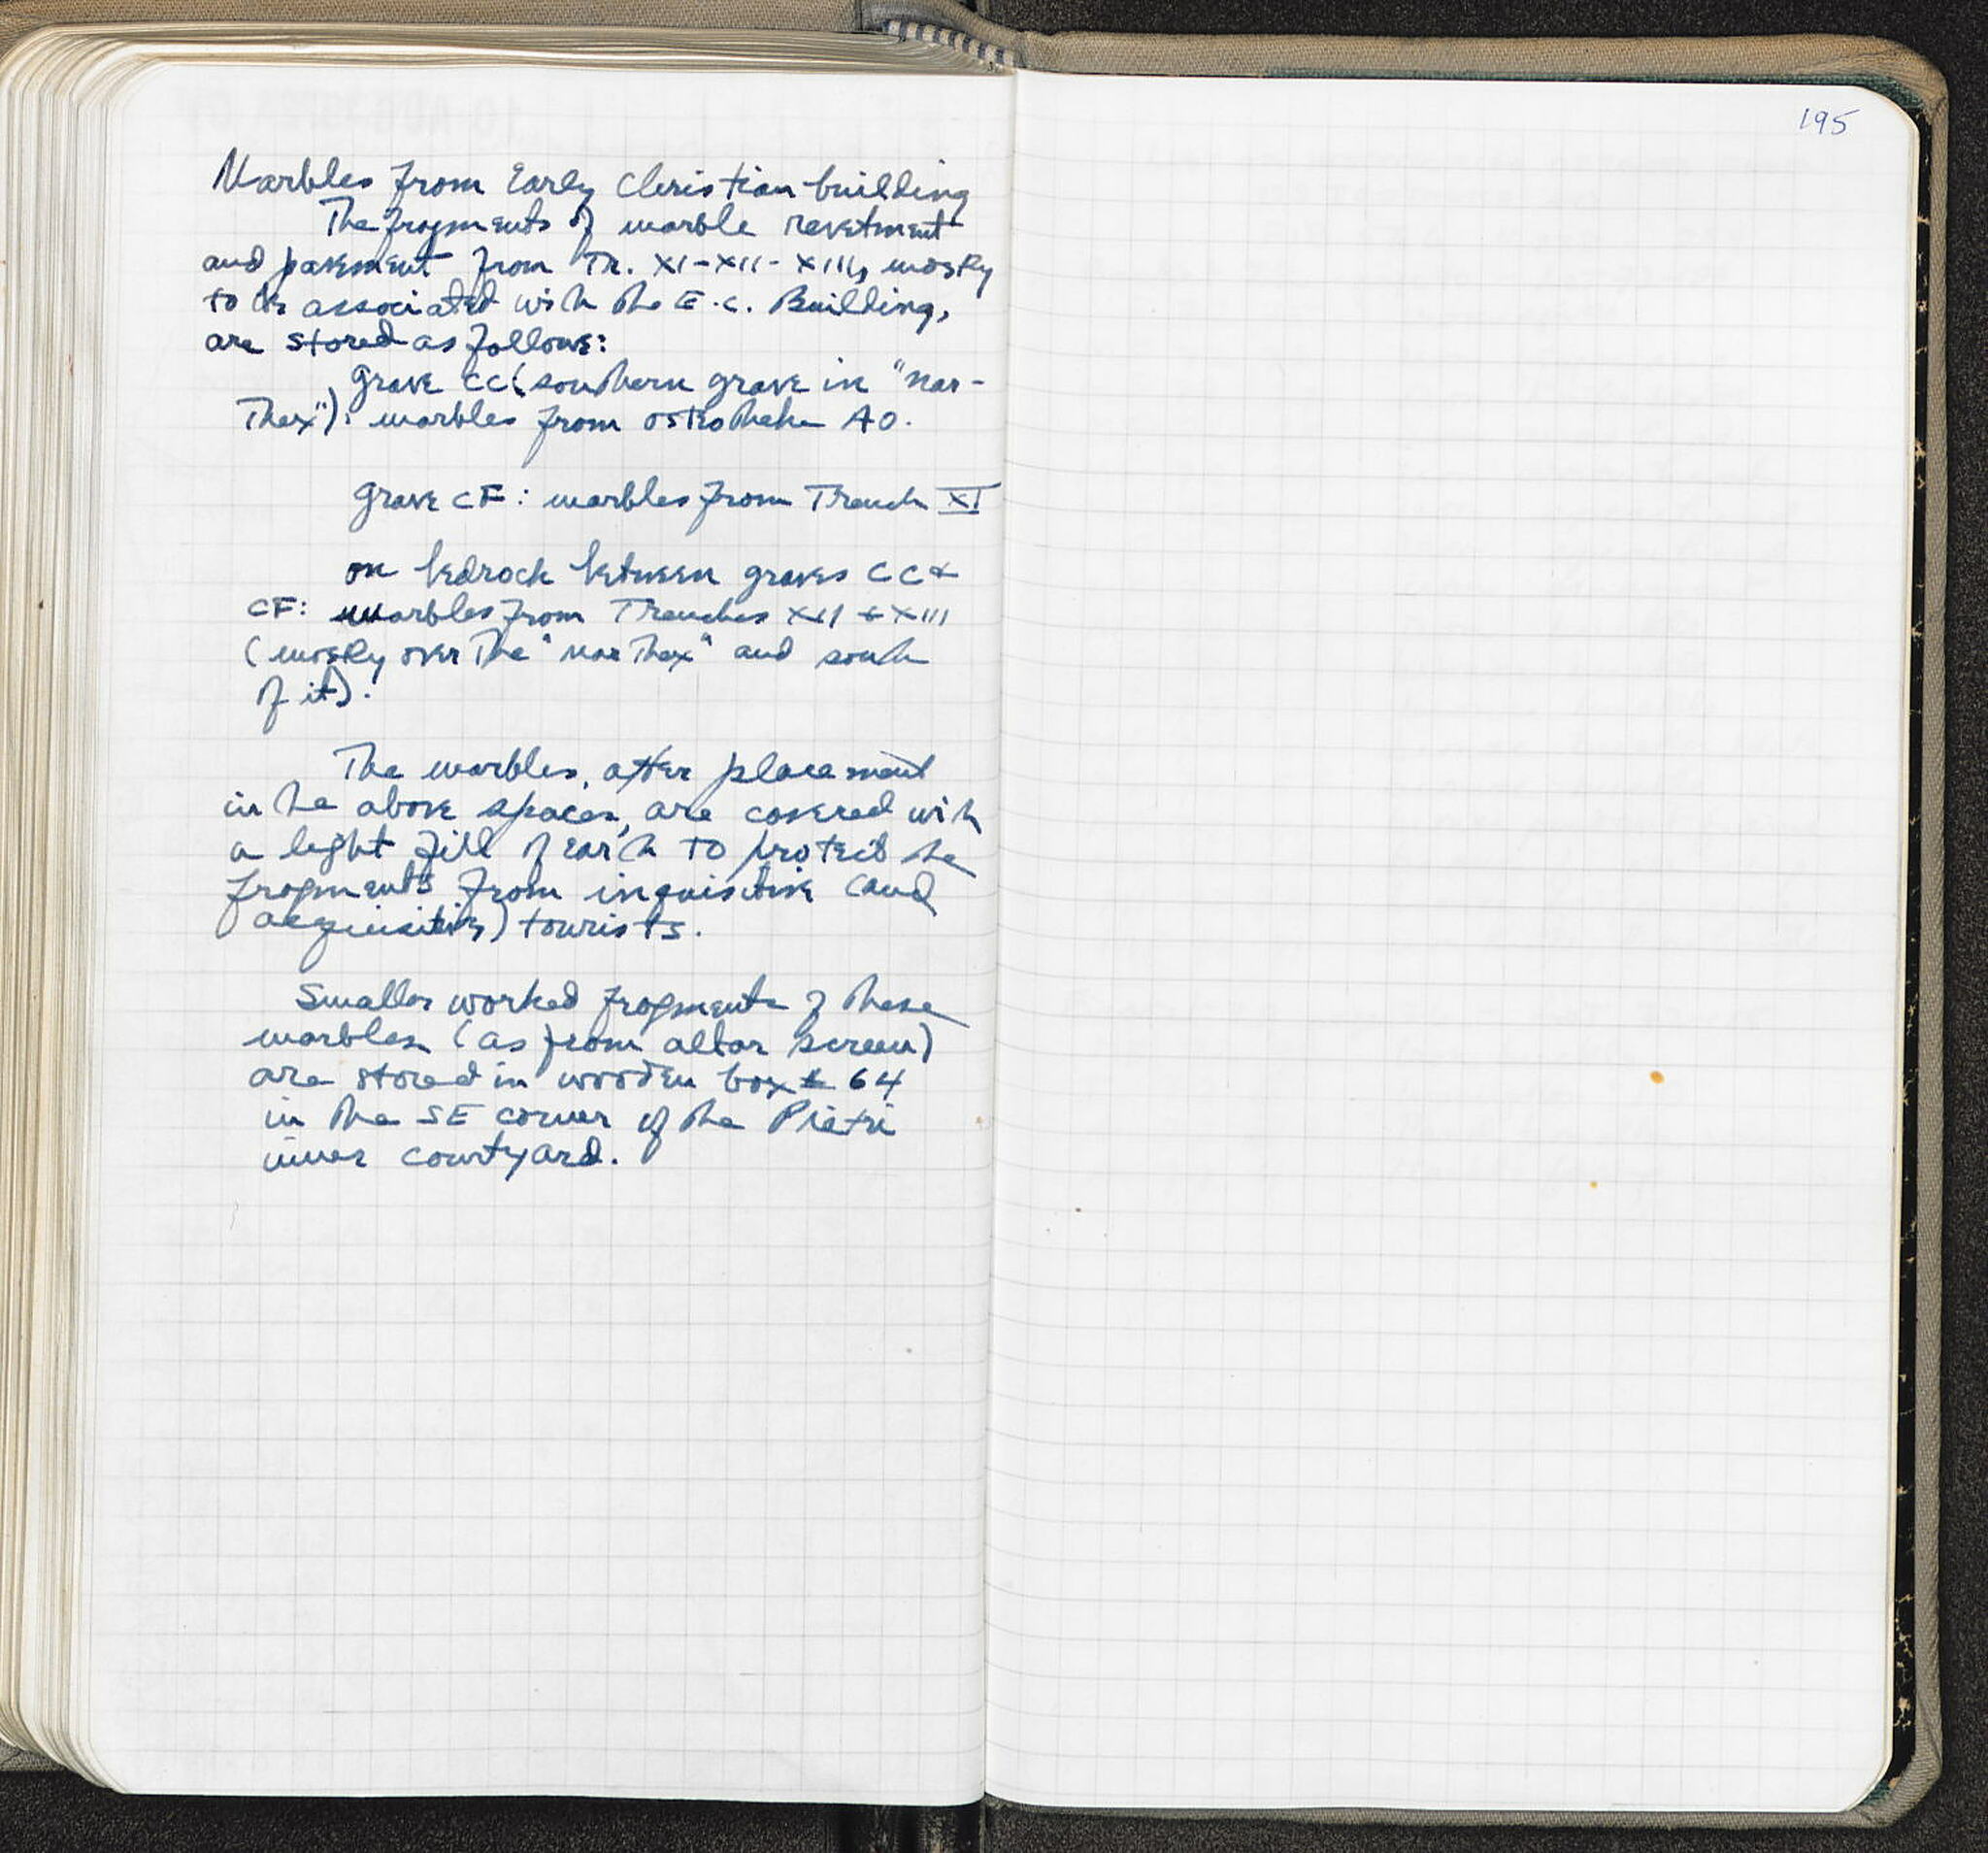 Marbles from Early Christian building
The fragments of marble revetment
and pavement from Tr. XI-XII-XIII, mostly
to be associated with the E.C. Building,
are stored as follows:
grave CC (southern grave in "nar-
thex"): marbles from ostotheke AO.
grave CF: marbles from Trench XI
on bedrock between graves CC &
CF: marbles from Trenches XII & XIII
(mostly over the "narthex" and south
of it).
The marbles, after placement
in the above spaces, are covered with
a light fill of earth to protect the
fragments from inquisitive (and
acquisitive) tourists.
Smaller worked fragments of these
marbles (as from altar screen)
are stored in wooden box # 64
in the SE corner of the Pietri
inner courtyard.
195